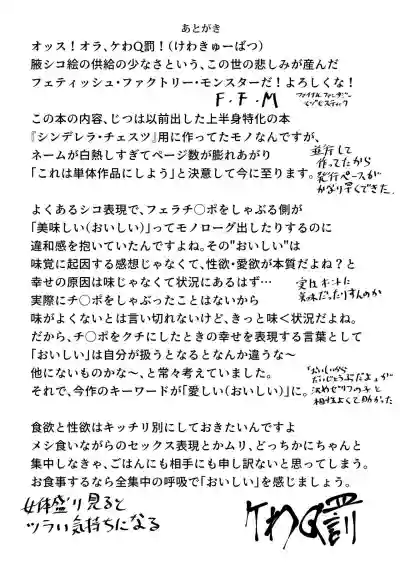 あとがき
オッス！オラ、ケわQ罰！（けわきゅーばつ）
腋シコ絵の供給の少なさという、この世の悲しみが産んだ
フェティッシュ・ファクトリー・モンスターだ！よろしくな！
F.F.M
この本の内容、じつは以前出した上半身特化の本
『シンデレラ・チェスツ』用に作ってたモノなんですが、
ネームが白熱しすぎてページ数が膨れあがり
「これは単体作品にしよう」と決意して今に至ります。
並行して
作ってたから
発行ペースが
かなり早くできた。
よくあるシコ表現で、フェラチ〇ポをしゃぶる側が
「美味しい（おいしい）」ってモノローグ出したりするのに
違和感を抱いていたんですよね。その"おいしい"は
味覚に起因する感想じゃなくて、性欲・愛欲が本質だよね？と
幸せの原因は味じゃなくて状況にあるはず…
実際にチ〇ポをしゃぶったことはないから
味がよくないとは言い切れないけど、きっと味＜状況だよね。
だから、チ〇ポをクチにしたときの幸せを表現する言葉として
「おいしい」は自分が扱うとなるとなんか違うな〜
他にないものかな〜、と常々考えていました。
それで、今作のキーワードが「愛しい（おいしい）」に。
実はホントに
美味だったりすんのか
「おいしいから
だいじょうぶだよ」が
決めゼリフの子と
相性よくて助かった
食欲と性欲はキッチリ別にしておきたいんですよ
メシ食いながらのセックス表現とかムリ、どっちかにちゃんと
集中しなきゃ、ごはんにも相手にも申し訳ないと思ってしまう。
お食事するなら全集中の呼吸で「おいしい」を感じましょう。
女体盛り見ると
ツラい気持ちになる
ケわQ罰